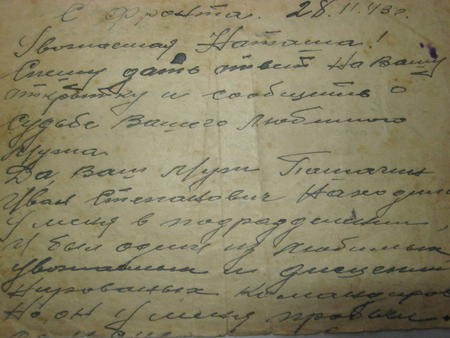 С фронта. 28.11.43г.
Уважаемая Наташа!
Спешу дать ответ на Вашу
открытку и сообщить о
судьбе Вашего любимого
мужа
Да Ваш муж
Иван Степанович Находил
у меня в подразделении,
и был один из любимых
уважаемых и дисципли
нированых командиров
Но он у меня пробыл